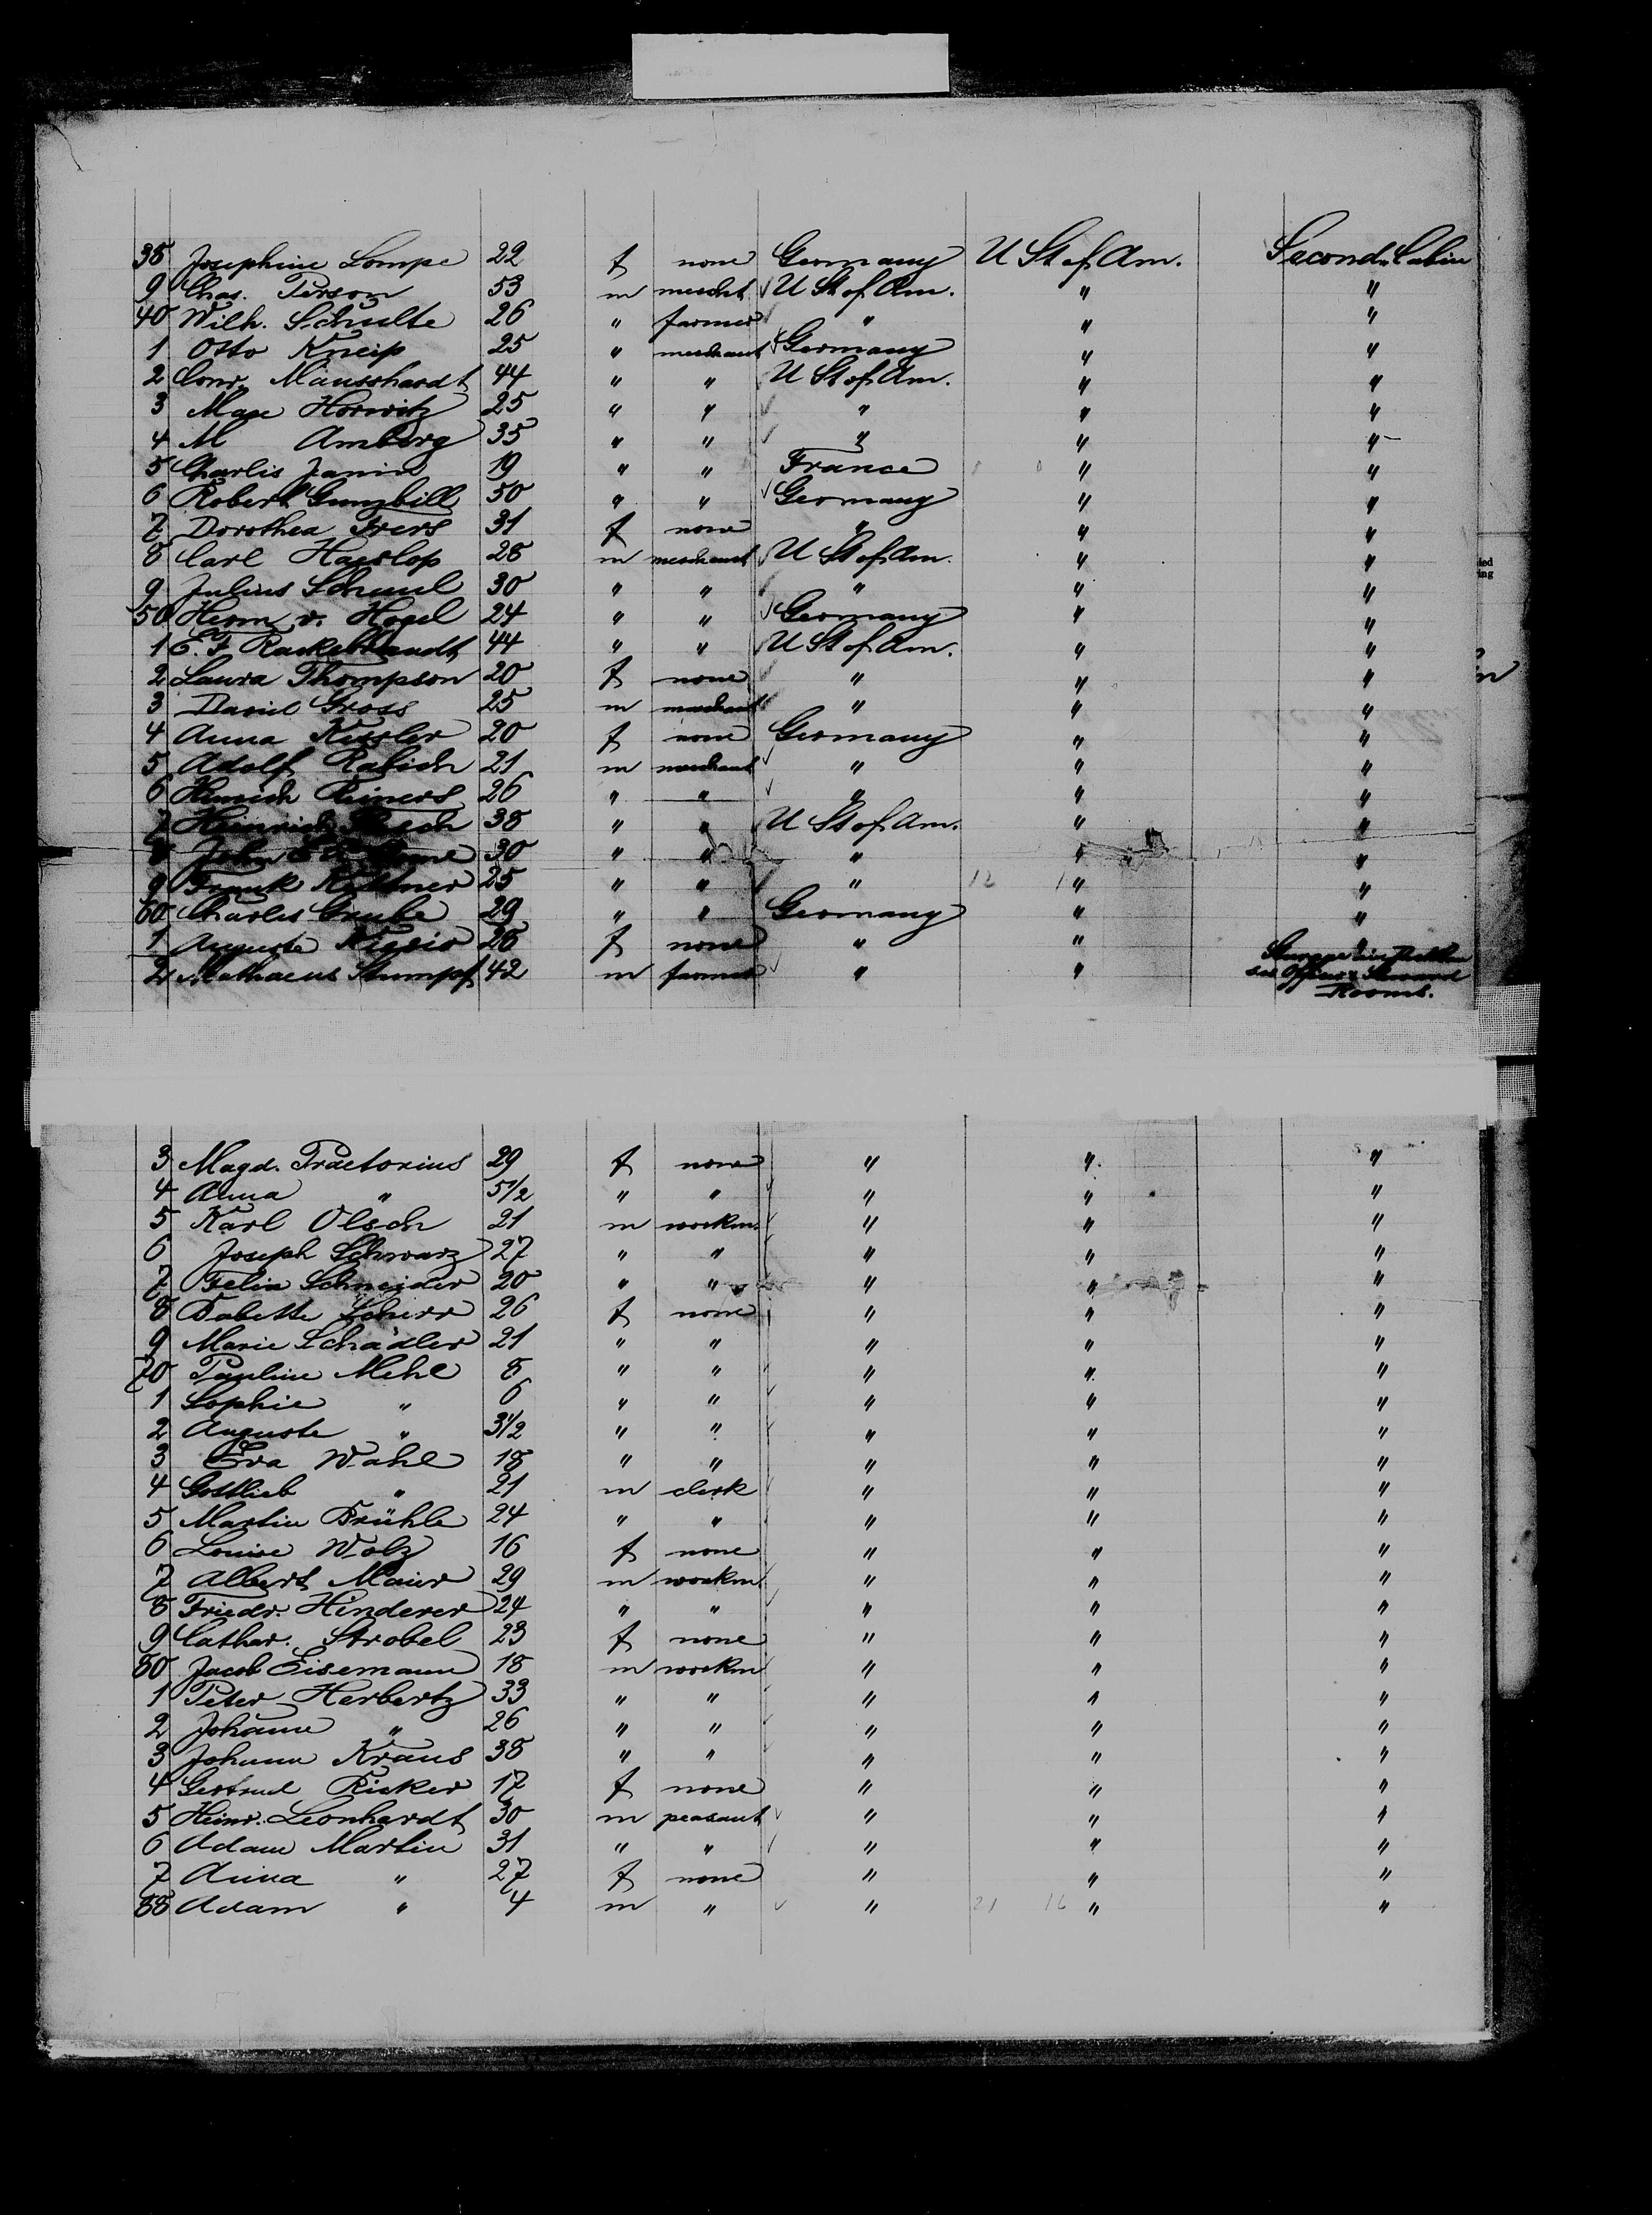 38 Josephine Lompe 22 f none Germany U St of Am. Second Cabin
9 Chas. Person 53 m mercht U St of Am. " "
40 Wilh. Schulte 26 " farmer " " "
1 Otto Kneip 25 " merchant Germany " "
2 Conr. Mausshardt 44 " " U St of Am. " "
3 Max Horwitz 25 " " " " "
4 M Amberg 35 " " " " "
5 Charlis Janin 19 " " France " "
6 Robert Gunzbill 50 " " Germany " "
7 Dorothea Frers 31 f none " " "
8 Carl Haeslop 28 m merchant U St of Am. " "
9 Julius 30 " " " " "
50 Herm v. Hogel 24 " " Germany " "
1 E. F. 44 " " U St of Am. " "
2 Laura Thompson 20 f none " " "
3 David Gross 25 m merchant " " "
4 Anna Kessler 20 f none Germany " "
5 Adolf Rabich 21 m merchant " " "
6 Hinrich Reiners 26 " " " " "
7 Heinrich 38 " " U St of Am. " "
8 John 30 " " " " "
9 Frank Kettner 25 " " " 12 1 " "
60 Charles Grube 29 " " Germany " "
1 Auguste 28 f none " " "
2 Mathaeus Stumpf 42 m farmer " " Steerage
Rooms.
3 Magd. Praetorius 29 f none " " "
4 Anna " 5 1/2 " " " " "
5 Karl Olsch 21 m workm. " " "
6 Joseph Schwarz 27 " " " " "
7 Felix Schneider 20 " " " " "
8 Babette Scherr 26 f none " " "
9 Marie Schädler 21 " " " " "
70 Pauline Mehl 8 " " " " "
1 Sophie " 6 " " " " "
2 Auguste " 3 1/2 " " " " "
3 Eva Wahl 18 " " " " "
4 Gottlieb " 21 m clerk " " "
5 Martin Brühle 24 " " " " "
6 Louise Wolz 16 f none " " "
7 Albert Maier 29 m workm. " " "
8 Friedr. Hinderer 24 " " " " "
9 Cathar. Strobel 23 f none " " "
80 Jacob Eisemann 18 m workm " " "
1 Peter Herbertz 33 " " " " "
2 Johann " 26 " " " " "
3 Johann Kraus 38 " " " " "
4 Gertrud Ricker 17 f none " " "
5 Heinr. Leonhardt 30 m peasant " " "
6 Adam Martin 31 " " " " "
7 Anna " 27 f none " " "
88 Adam " 4 m " " 21 16 " "